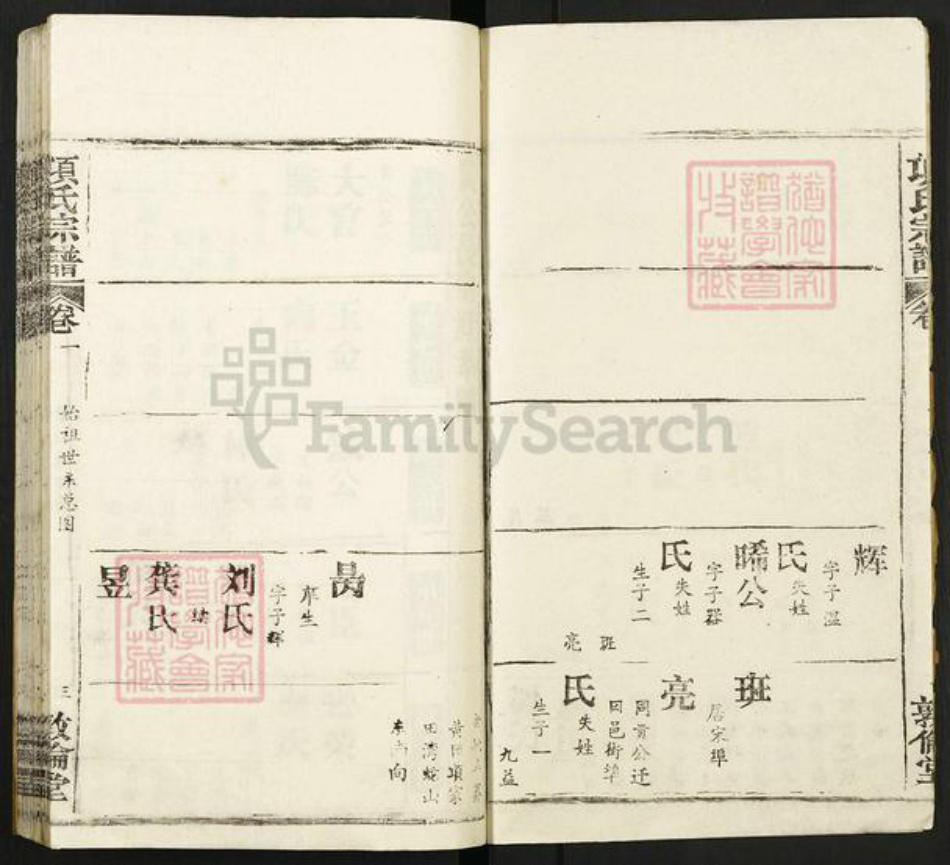 項氏宗譜
辉
字子温
氏
失姓
晞公
字子器
氏
失姓
生子二
班
亮
班
居宋埠
亮
同貴公迁
回邑街埠
氏
失姓
生子一
九益
敦倫堂
黄田項家
田湾蛇山
东南向
字子辉
刘氏
龚氏
昱
項氏宗譜
卷一
始祖世系总图
三
敦倫堂
FamilySearch